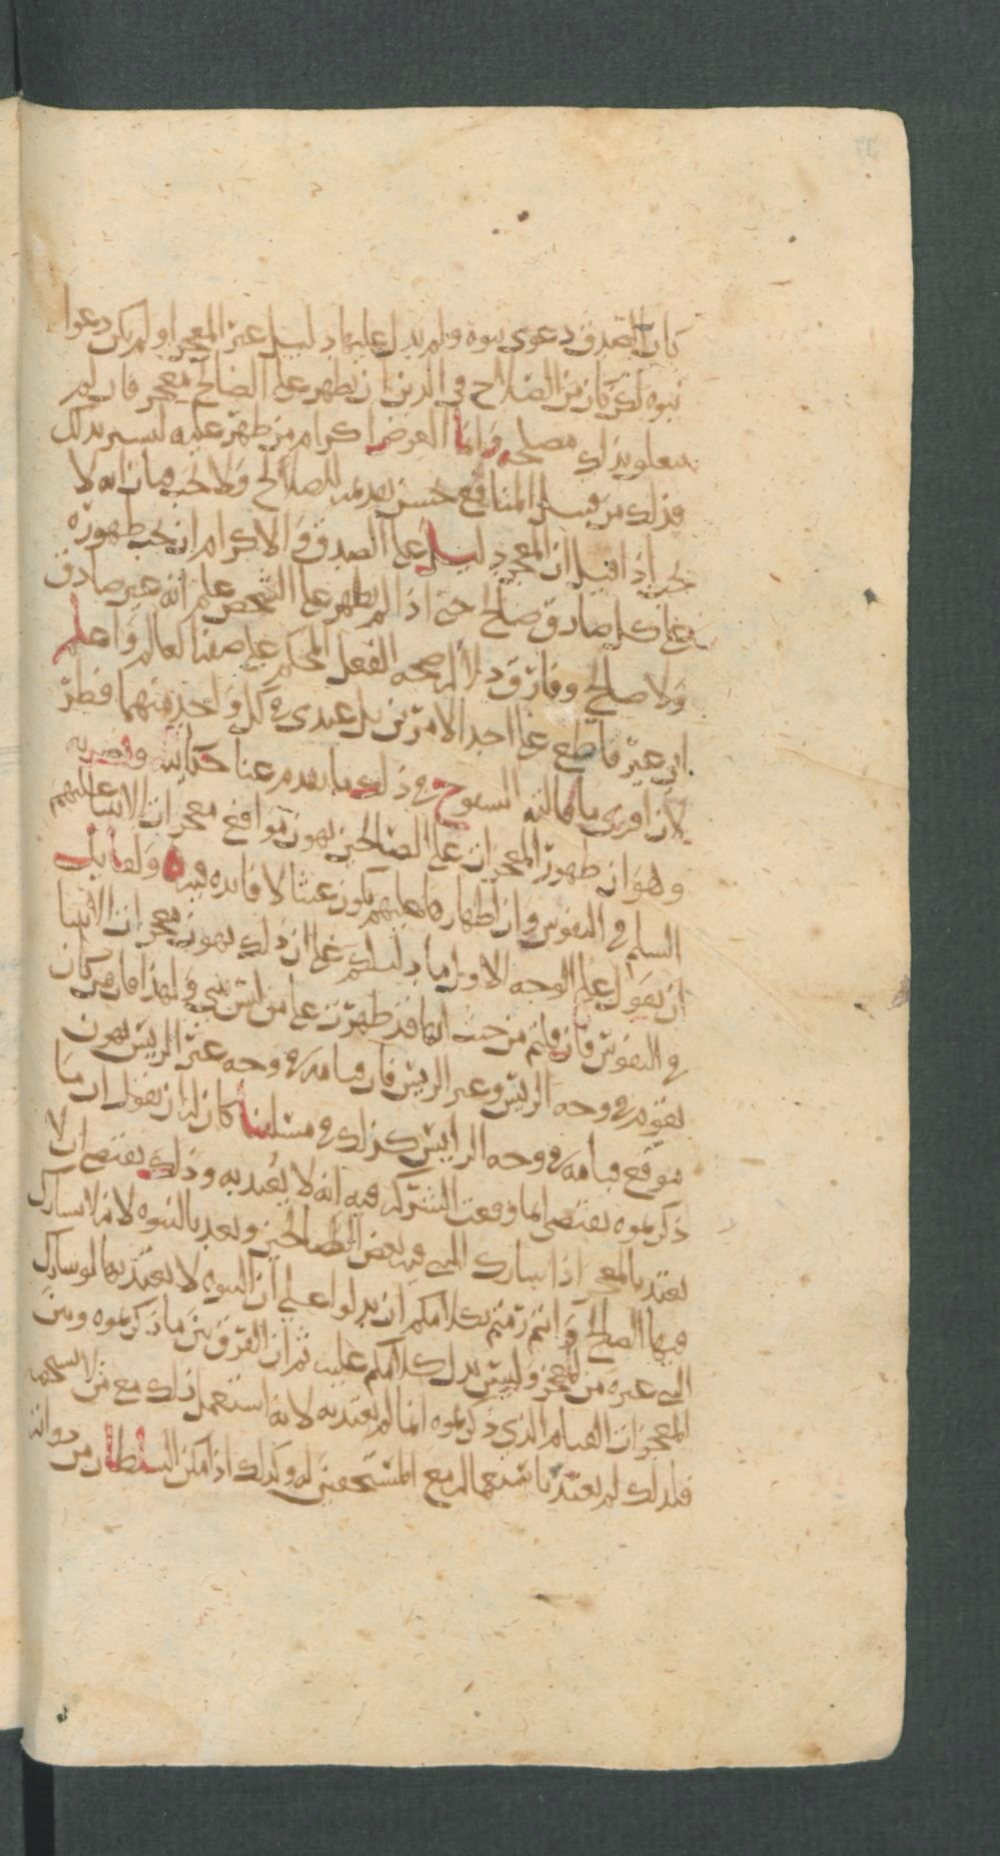 بان الصدق دعوى نبوه ولم يدل عليها دليل غير المعجز او لم يكن دعوا
نبوه لكن كان من الصلاح في الدين ان يظهر على الصالح معجز فان لم
يتعلق بذلك مصلحه وانما الغرض اكرام من ظهر عليه ليسير بذلك
فذلك من قبيل المنافع حسن تقديمه للصالح ولا يجب فبان انه لا
يجب اذا قيل ان المعجز دليل على الصدق والاكرام ان يجب ظهوره
على كل صادق صالح حتى اذا لم يظهر على الشخص علم انه غير صادق
ولا صالح وفارق دلاله صحه الفعل المحكم على صفه العالم واعلم
اني غير قاطع على احد الامرين بل عندي في كل واحد منهما نظر
لان اقوى ما قالته الشيوخ في ذلك ما تقدم عنا حكايته ونصرته
وهو ان ظهور المعجزات على الصالحين يهون مواقع معجزات الانبيا عليهم
السلم في النفوس وان اظهارها عليهم يكون عبثا لا فائده فيه ه ولقايل
ان يقول على الوجه الاول ما دليلكم على ان ذلك يهون معجزات الانبيا
في النفوس فان قلتم من حيث انها قد ظهرت على من ليس بنبي ولهذا فان من كان
يقوم في وجه الريس وغير الريس فان قيامه في وجه غير الريس يهون
موقع قيامه في وجه الرايس كذلك في مسلتنا كان له ان يقول ان ما
ذكرتموه يقتضي انما وقعت الشركه فيه انه لا يعتد به وذلك يقتضي ان لا
يعتد بالمعجز اذا شارك النبي فيه بعض الصالحين ويعتد بالنبوه لانه لا يشارك
فيها الصالح وانتم رمتم بكلامكم ان تدلوا على ان النبوه لا يعتد بها لو شارك
النبي غيره من المعجز وليس يدل كلامكم عليه ثم ان الفرق بين ما ذكرتموه وبين
المعجزات القيام الذي ذكرتموه انما لم يعتد به لانه استعمل ذلك مع من لا يستحقه
فلذلك لم يعتد باستعماله مع المستحقين له وكذلك اذا مكن السلطان من